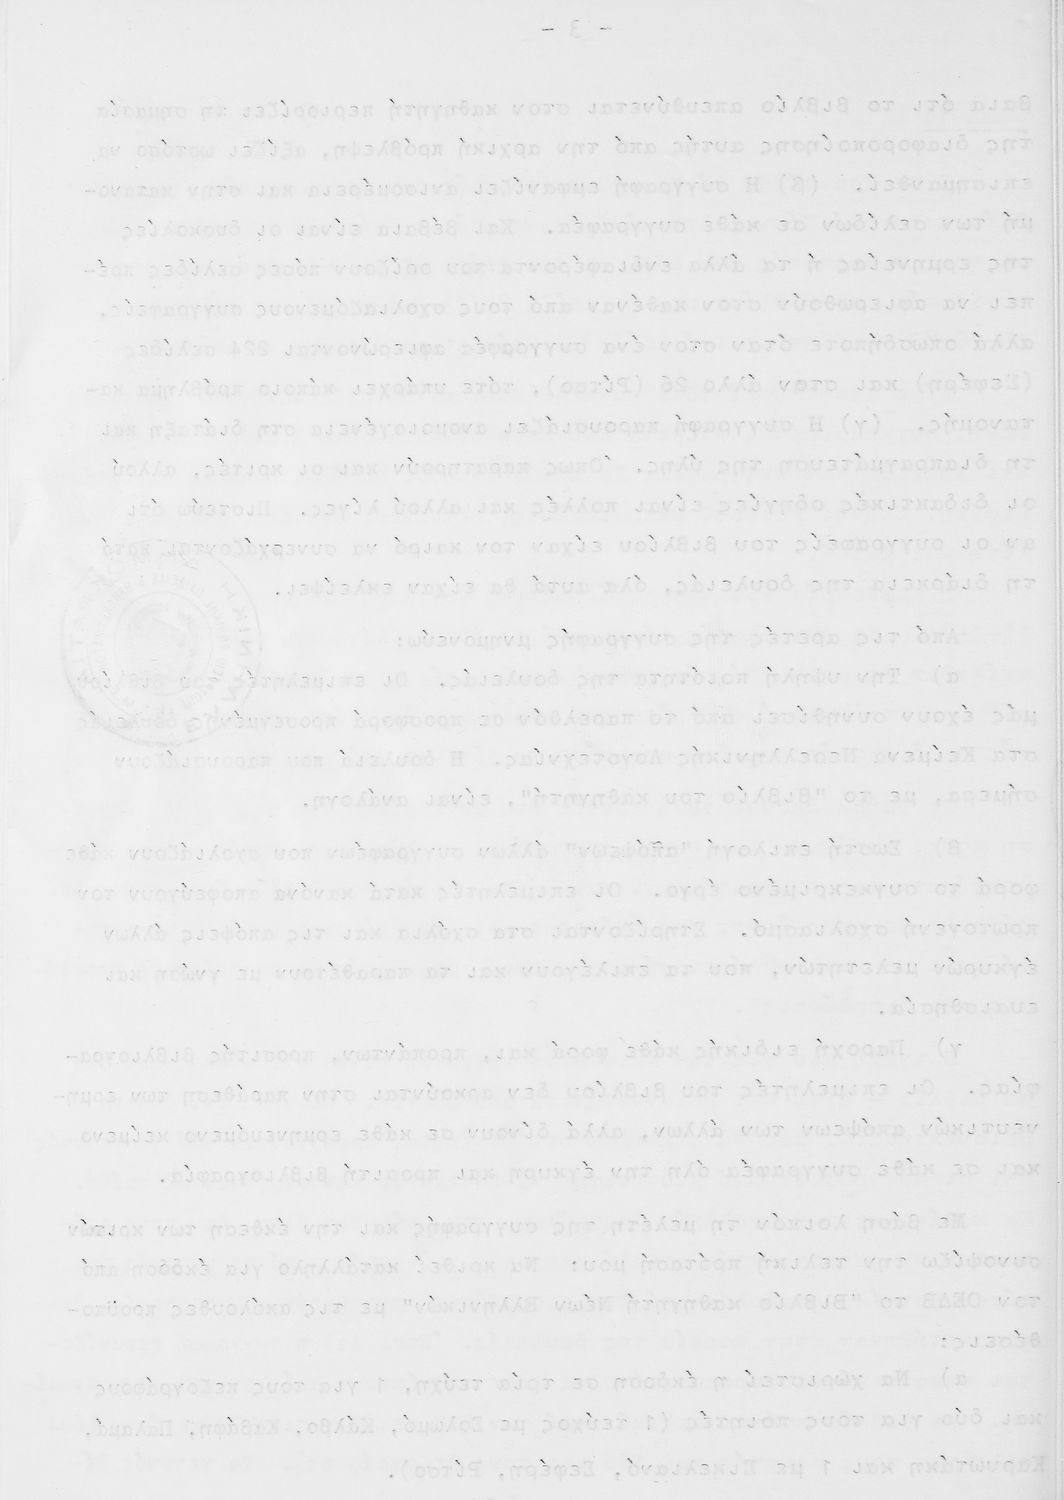 - 3 -
βαια ότι το βιβλίο απευθύνεται στον καθηγητή περιορίζει τη σημασία
της διαφοροποίησης αυτής από την αρχική πρόβλεψη, αξίζει ωστόσο να
επισημανθεί. (β) Η συγγραφή εμφανίζει ανισομέρεια και στην κατανο-
μή των σελίδων σε κάθε συγγραφέα. Και βέβαια είναι οι δυσκολίες
της ερμηνείας ή τα άλλα ενδιαφέροντα που ορίζουν πόσες σελίδες πρέ-
πει να αφιερωθούν στον καθέναν από τους σχολιαζόμενους συγγραφείς,
αλλά οπωσδήποτε όταν στον ένα συγγραφέα αφιερώνονται 224 σελίδες
(Σεφέρη) και στον άλλο 26 (Ρίτσο), τότε υπάρχει κάποιο πρόβλημα κα-
τανομής. (γ) Η συγγραφή παρουσιάζει ανομοιογένεια στη διάταξη και
τη διαπραγμάτευση της ύλης. Όπως παρατηρούν και οι κριτές, αλλού
οι διδακτικές οδηγίες είναι πολλές και αλλού λίγες. Πιστεύω ότι
αν οι συγγραφείς του βιβλίου είχαν τον καιρό να συνεργάζονται κατά
τη διάρκεια της δουλειάς, όλα αυτά θα είχαν εκλείψει.
Από τις αρετές της συγγραφής μνημονεύω:
α) Την υψηλή ποιότητα της δουλειάς. Οι επιμελητές του βιβλίου
μάς έχουν συνηθίσει από το παρελθόν σε προσφορά προσεγμένης δουλειάς
στα Κείμενα Νεοελληνικής Λογοτεχνίας. Η δουλειά που παρουσιάζουν
σήμερα, με το "Βιβλίο του καθηγητή", είναι ανάλογη.
β) Σωστή επιλογή "απόψεων" άλλων συγγραφέων που σχολιάζουν κάθε
φορά το συγκεκριμένο έργο. Οι επιμελητές κατά κανόνα αποφεύγουν τον
πρωτογενή σχολιασμό. Στηρίζονται στα σχόλια και τις απόψεις άλλων
έγκυρών μελετητών, που τα επιλέγουν και τα παραθέτουν με γνώση και
ευαισθησία.
γ) Παροχή ειδικής κάθε φορά και, προπάντων, προσιτής βιβλιογρα-
φίας. Οι επιμελητές του βιβλίου δεν αρκούνται στην παράθεση των ερμη-
νευτικών απόψεων των άλλων, αλλά δίνουν σε κάθε ερμηνευόμενο κείμενο
και σε κάθε συγγραφέα όλη την έγκυρη και προσιτή βιβλιογραφία.
Με βάση λοιπόν τη μελέτη της συγγραφής και την έκθεση των κριτών
συνοψίζω την τελική πρότασή μου: Να κριθεί κατάλληλο για έκδοση από
τον ΟΕΔΒ το "Βιβλίο καθηγητή Νέων Ελληνικών" με τις ακόλουθες προϋπο-
θέσεις:
α) Να χωριστεί η έκδοση σε τρία τεύχη, 1 για τους πεζογράφους
και δύο για τους ποιητές (1 τεύχος με Σολωμό, Κάλβο, Καβάφη, Παλαμά,
Καρυωτάκη και 1 με Σικελιανό, Σεφέρη, Ρίτσο).